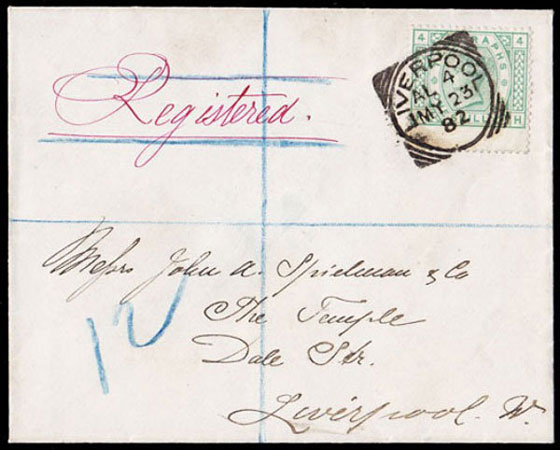 4 RAPHS 4
LIVERPOOL
AL 4
MY 23
82
Registered.
Messrs John A. Spielman & Co
The Temple
Dale Str.
Liverpool. W.
12